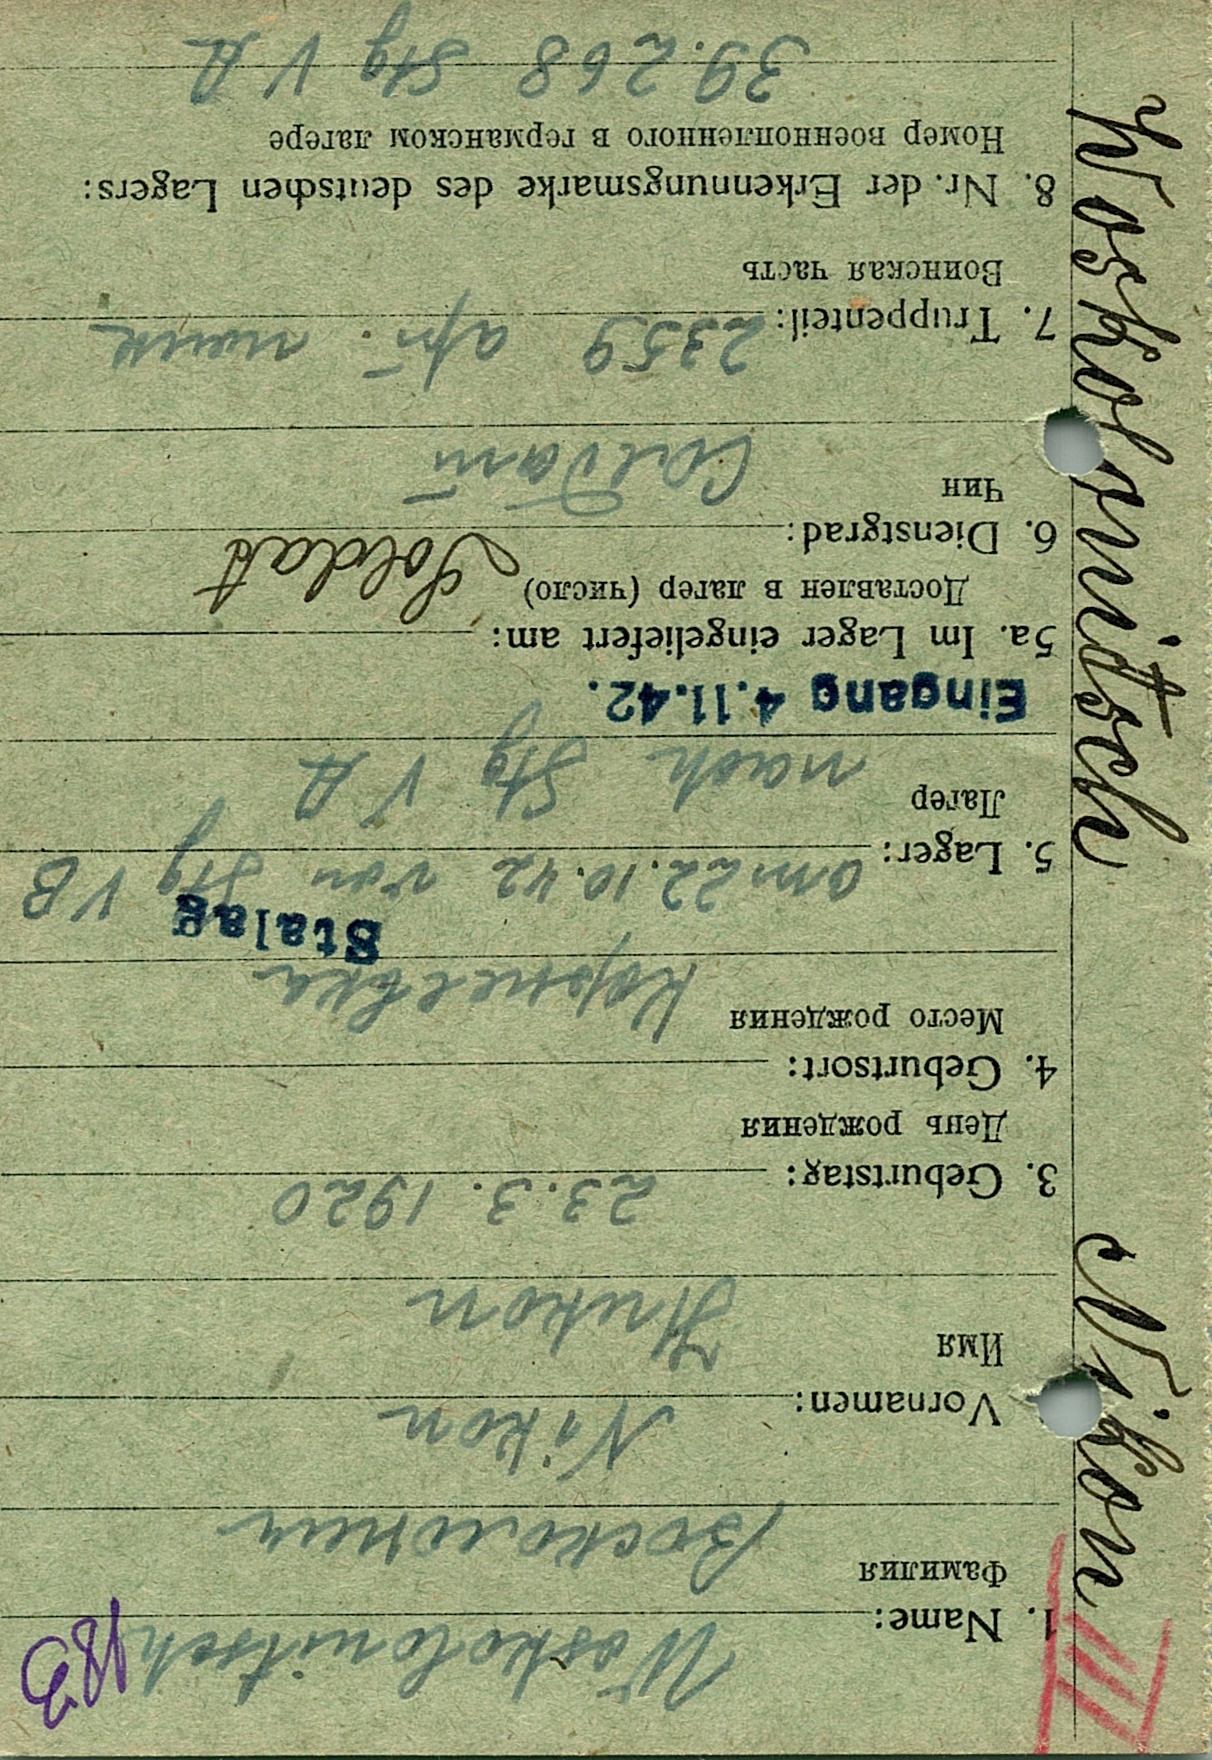 183
Woskolonitsch
1. Name:
Фамилия
Восколонич
Nikon
Vornamen:
Имя
Никон
23.3.1920
3. Geburtstag:
День рождения
4. Geburtsort:
Место рождения
Корневка
Stalag
am 22.10.42 von Stg VB
5. Lager:
Лагер
nach Stg VA
Eingang 4.11.42.
5a. Im Lager eingeliefert am:
Доставлен в лагер (число)
Soldat
6. Dienstgrad:
Чин
Солдат
2359 арт. полк
7. Truppenteil:
Воинская часть
8. Nr. der Erkennungsmarke des deutschen Lagers:
Номер военнопленного в германском лагере
39.268 Stg VA
III
Woskolonitsch Nikon